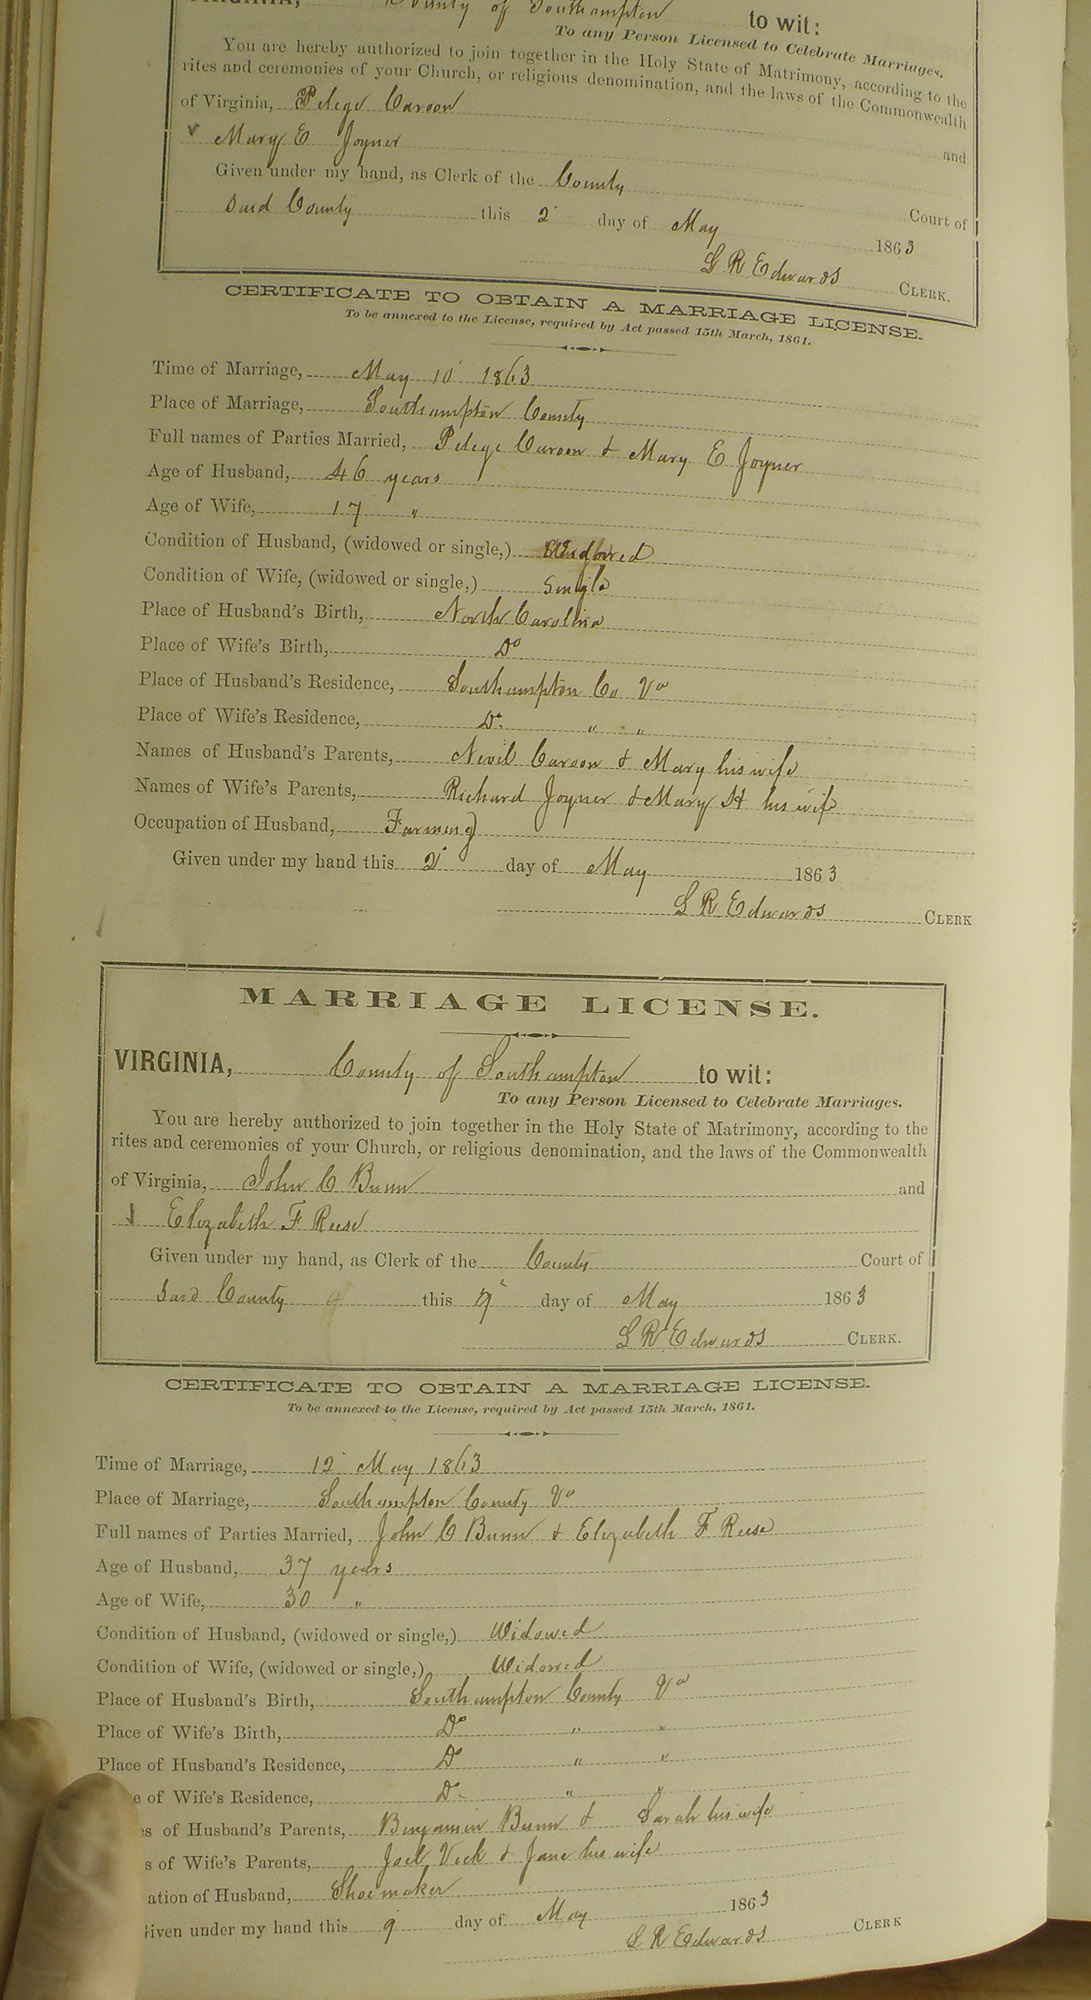 VIRGINIA, County of Southampton to wit:
To any Person Licensed to Celebrate Marriages.
You are hereby authorized to join together in the Holy State of Matrimony, according to the
rites and ceremonies of your Church, or religious denomination, and the laws of the Commonwealth
of Virginia, Pelege Carson and
Mary E Joyner
Given under my hand, as Clerk of the County Court of
Said County this 2 day of May 1863
L R Edwards CLERK.
CERTIFICATE TO OBTAIN A MARRIAGE LICENSE.
To be annexed to the License, required by Act passed 15th March, 1861.
Time of Marriage, May 10 1863
Place of Marriage, Southampton County
Full names of Parties Married, Pelege Carson & Mary E Joyner
Age of Husband, 46 years
Age of Wife, 17 "
Condition of Husband, (widowed or single,) Widowed
Condition of Wife, (widowed or single,) Single
Place of Husband's Birth, North Carolina
Place of Wife's Birth, Do
Place of Husband's Residence, Southampton Co Va
Place of Wife's Residence, Do " "
Names of Husband's Parents, Nevil Carson & Mary his wife
Names of Wife's Parents, Richard Joyner & Mary H his wife
Occupation of Husband, Farming
Given under my hand this 2 day of May 1863
L R Edwards CLERK
MARRIAGE LICENSE.
VIRGINIA, County of Southampton to wit:
To any Person Licensed to Celebrate Marriages.
You are hereby authorized to join together in the Holy State of Matrimony, according to the
rites and ceremonies of your Church, or religious denomination, and the laws of the Commonwealth
of Virginia, John C Bunn and
Elizabeth F Reese
Given under my hand, as Clerk of the County Court of
Said County this 9 day of May 1863
L R Edwards CLERK.
CERTIFICATE TO OBTAIN A MARRIAGE LICENSE.
To be annexed to the License, required by Act passed 15th March, 1861.
Time of Marriage, 12 May 1863
Place of Marriage, Southampton County Va
Full names of Parties Married, John C Bunn & Elizabeth F Reese
Age of Husband, 37 years
Age of Wife, 30 "
Condition of Husband, (widowed or single,) Widowed
Condition of Wife, (widowed or single,) Widowed
Place of Husband's Birth, Southampton County Va
Place of Wife's Birth, Do " "
Place of Husband's Residence, Do " "
e of Wife's Residence, Do " "
es of Husband's Parents, Benjamin Bunn & Sarah his wife
s of Wife's Parents, Joel Vick & Jane his wife
ation of Husband, Shoemaker
iven under my hand this 9 day of May 1863
L R Edwards CLERK